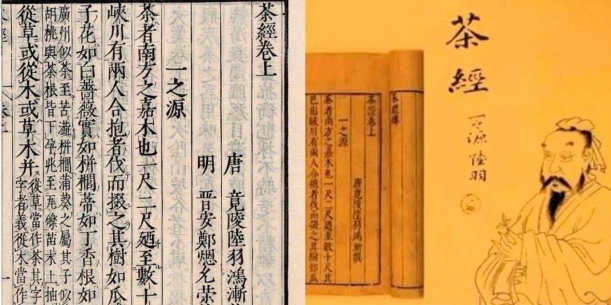 茶經卷上
唐 竟陵陸羽鴻漸
明 晉安鄭熜允榮
一之源
茶者南方之嘉木也一尺二尺廼至數十
峽川有兩人合抱者伐而掇之其樹如瓜
子花如白薔薇實如栟櫚蒂如丁香根如
廣州似茶至苦澁栟櫚蒲葵之屬其子似
胡桃與茶根皆下孕兆至瓦礫苗木上抽
從草或從木或草木并從草當作茶其字
字者義從木當作
茶經
一之源 陸羽
茶經卷上
唐竟陵陸羽鴻漸撰
一之源
茶者南方之嘉木也一尺二尺廼至數十尺其
巴山峽川有兩人合抱者伐而掇之其樹如瓜